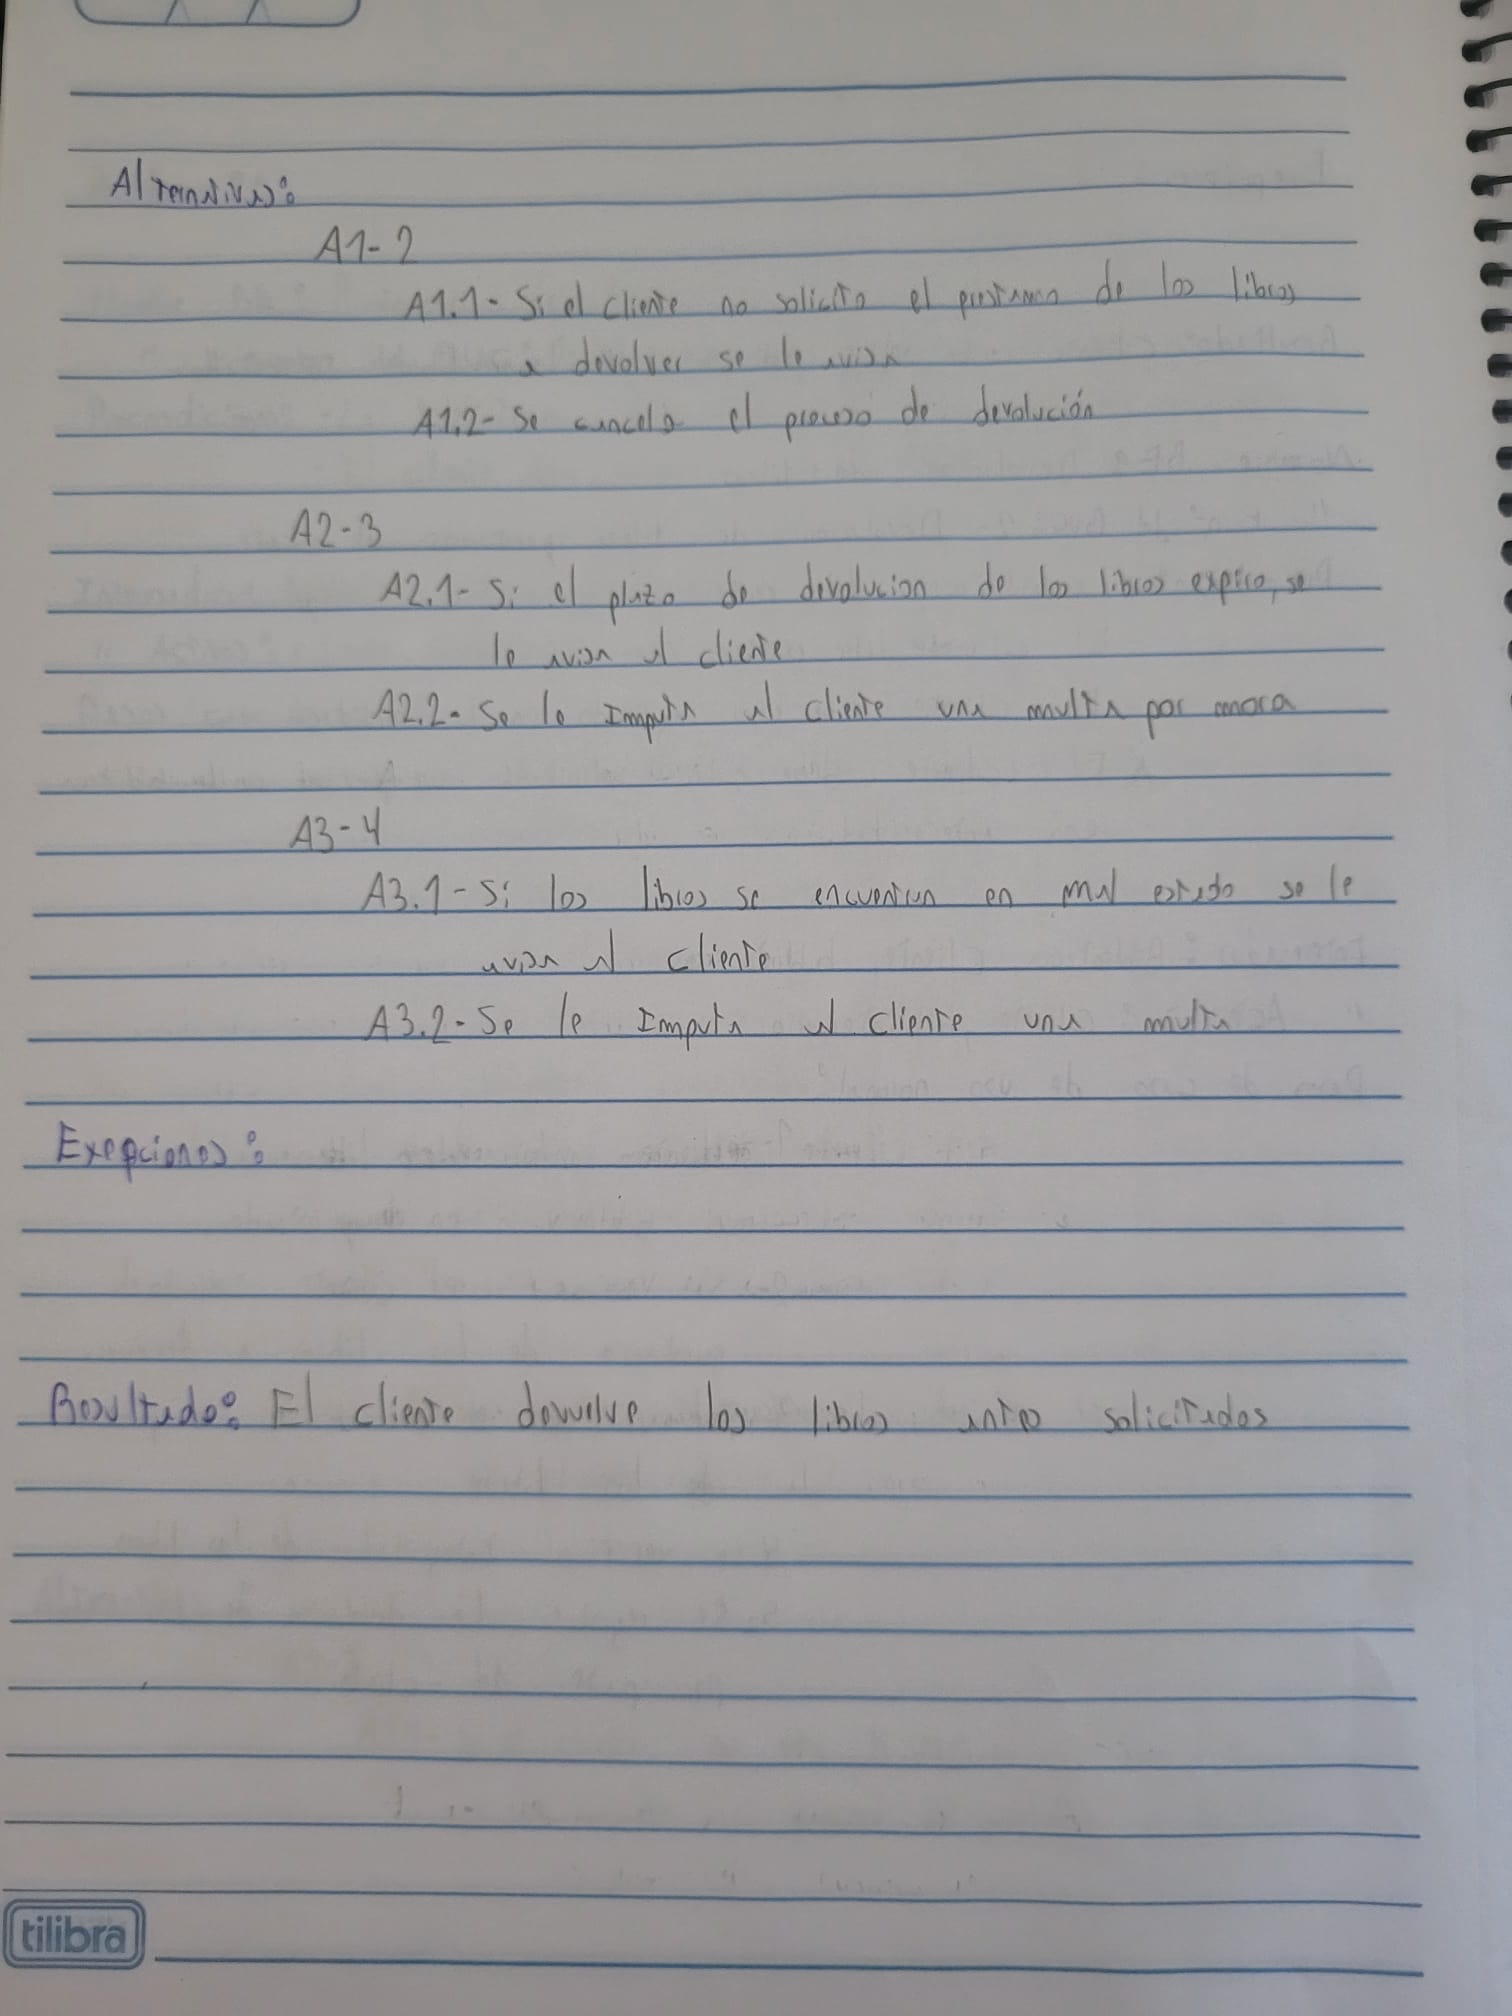 Alternativas:
A1-2
A1.1- Si el cliente no solicito el prestamo de los libros
a devolver se le avisa
A1.2- Se cancela el proceso de devolución
A2-3
A2.1- Si el plazo de devolucion de los libros expiro, se
le avisa al cliente
A2.2- Se le Imputa al cliente una multa por mora
A3-4
A3.1- Si los libros se encuentran en mal estado se le
avisa al cliente
A3.2- Se le Imputa al cliente una multa
Exepciones:
Resultado: El cliente devuelve los libros antes solicitados
tilibra